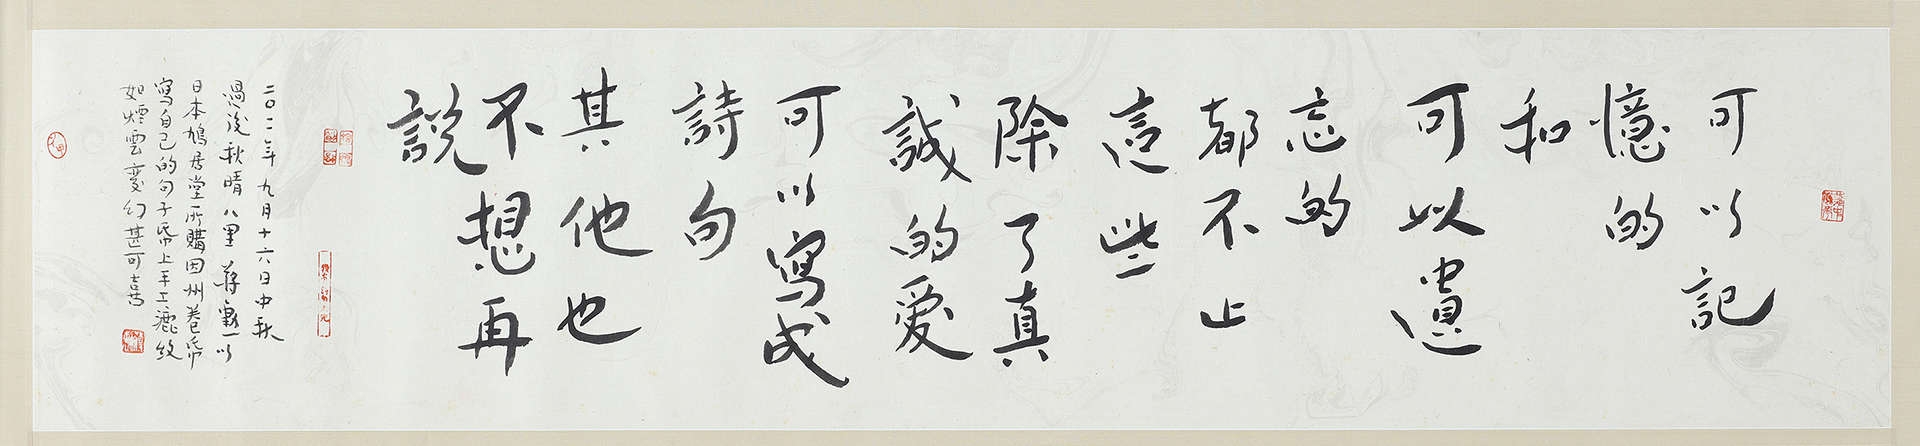 可以記
憶的
和
可以遺
忘的
都不止
這些
除了真
誠的愛
可以寫成
詩句
其他也
不想再
說
二〇二二年九月十六日中秋
過後秋晴八里蔣勳以
日本鳩居堂所購因州卷紙
寫自己的句子紙上手工漉紋
如煙雲變幻甚可喜